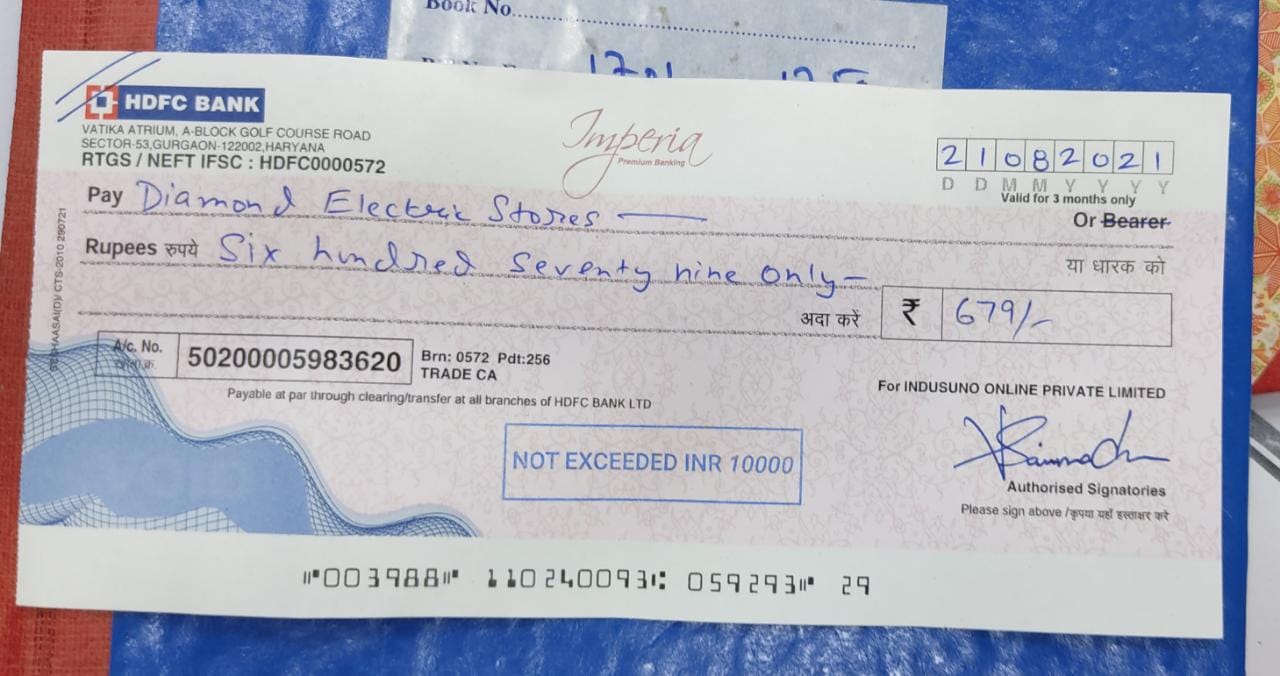 Book No.
HDFC BANK
VATIKA ATRIUM, A-BLOCK GOLF COURSE ROAD
SECTOR-53,GURGAON-122002,HARYANA
RTGS / NEFT IFSC : HDFC0000572
Imperia
Premium Banking
21082021
D D M M Y Y Y Y
Valid for 3 months only
Pay Diamond Electric Stores
Or Bearer
Rupees रुपये Six hundred seventy nine only
या धारक को
अदा करें ₹ 679/-
A/c. No. 50200005983620 Brn: 0572 Pdt:256
खाता क्र. TRADE CA
Payable at par through clearing/transfer at all branches of HDFC BANK LTD
For INDUSUNO ONLINE PRIVATE LIMITED
NOT EXCEEDED INR 10000
Authorised Signatories
Please sign above /कृपया यहाँ हस्ताक्षर करे
⑈003988⑈ 110240093⑆ 059293⑈ 29
CTS-2010 290721